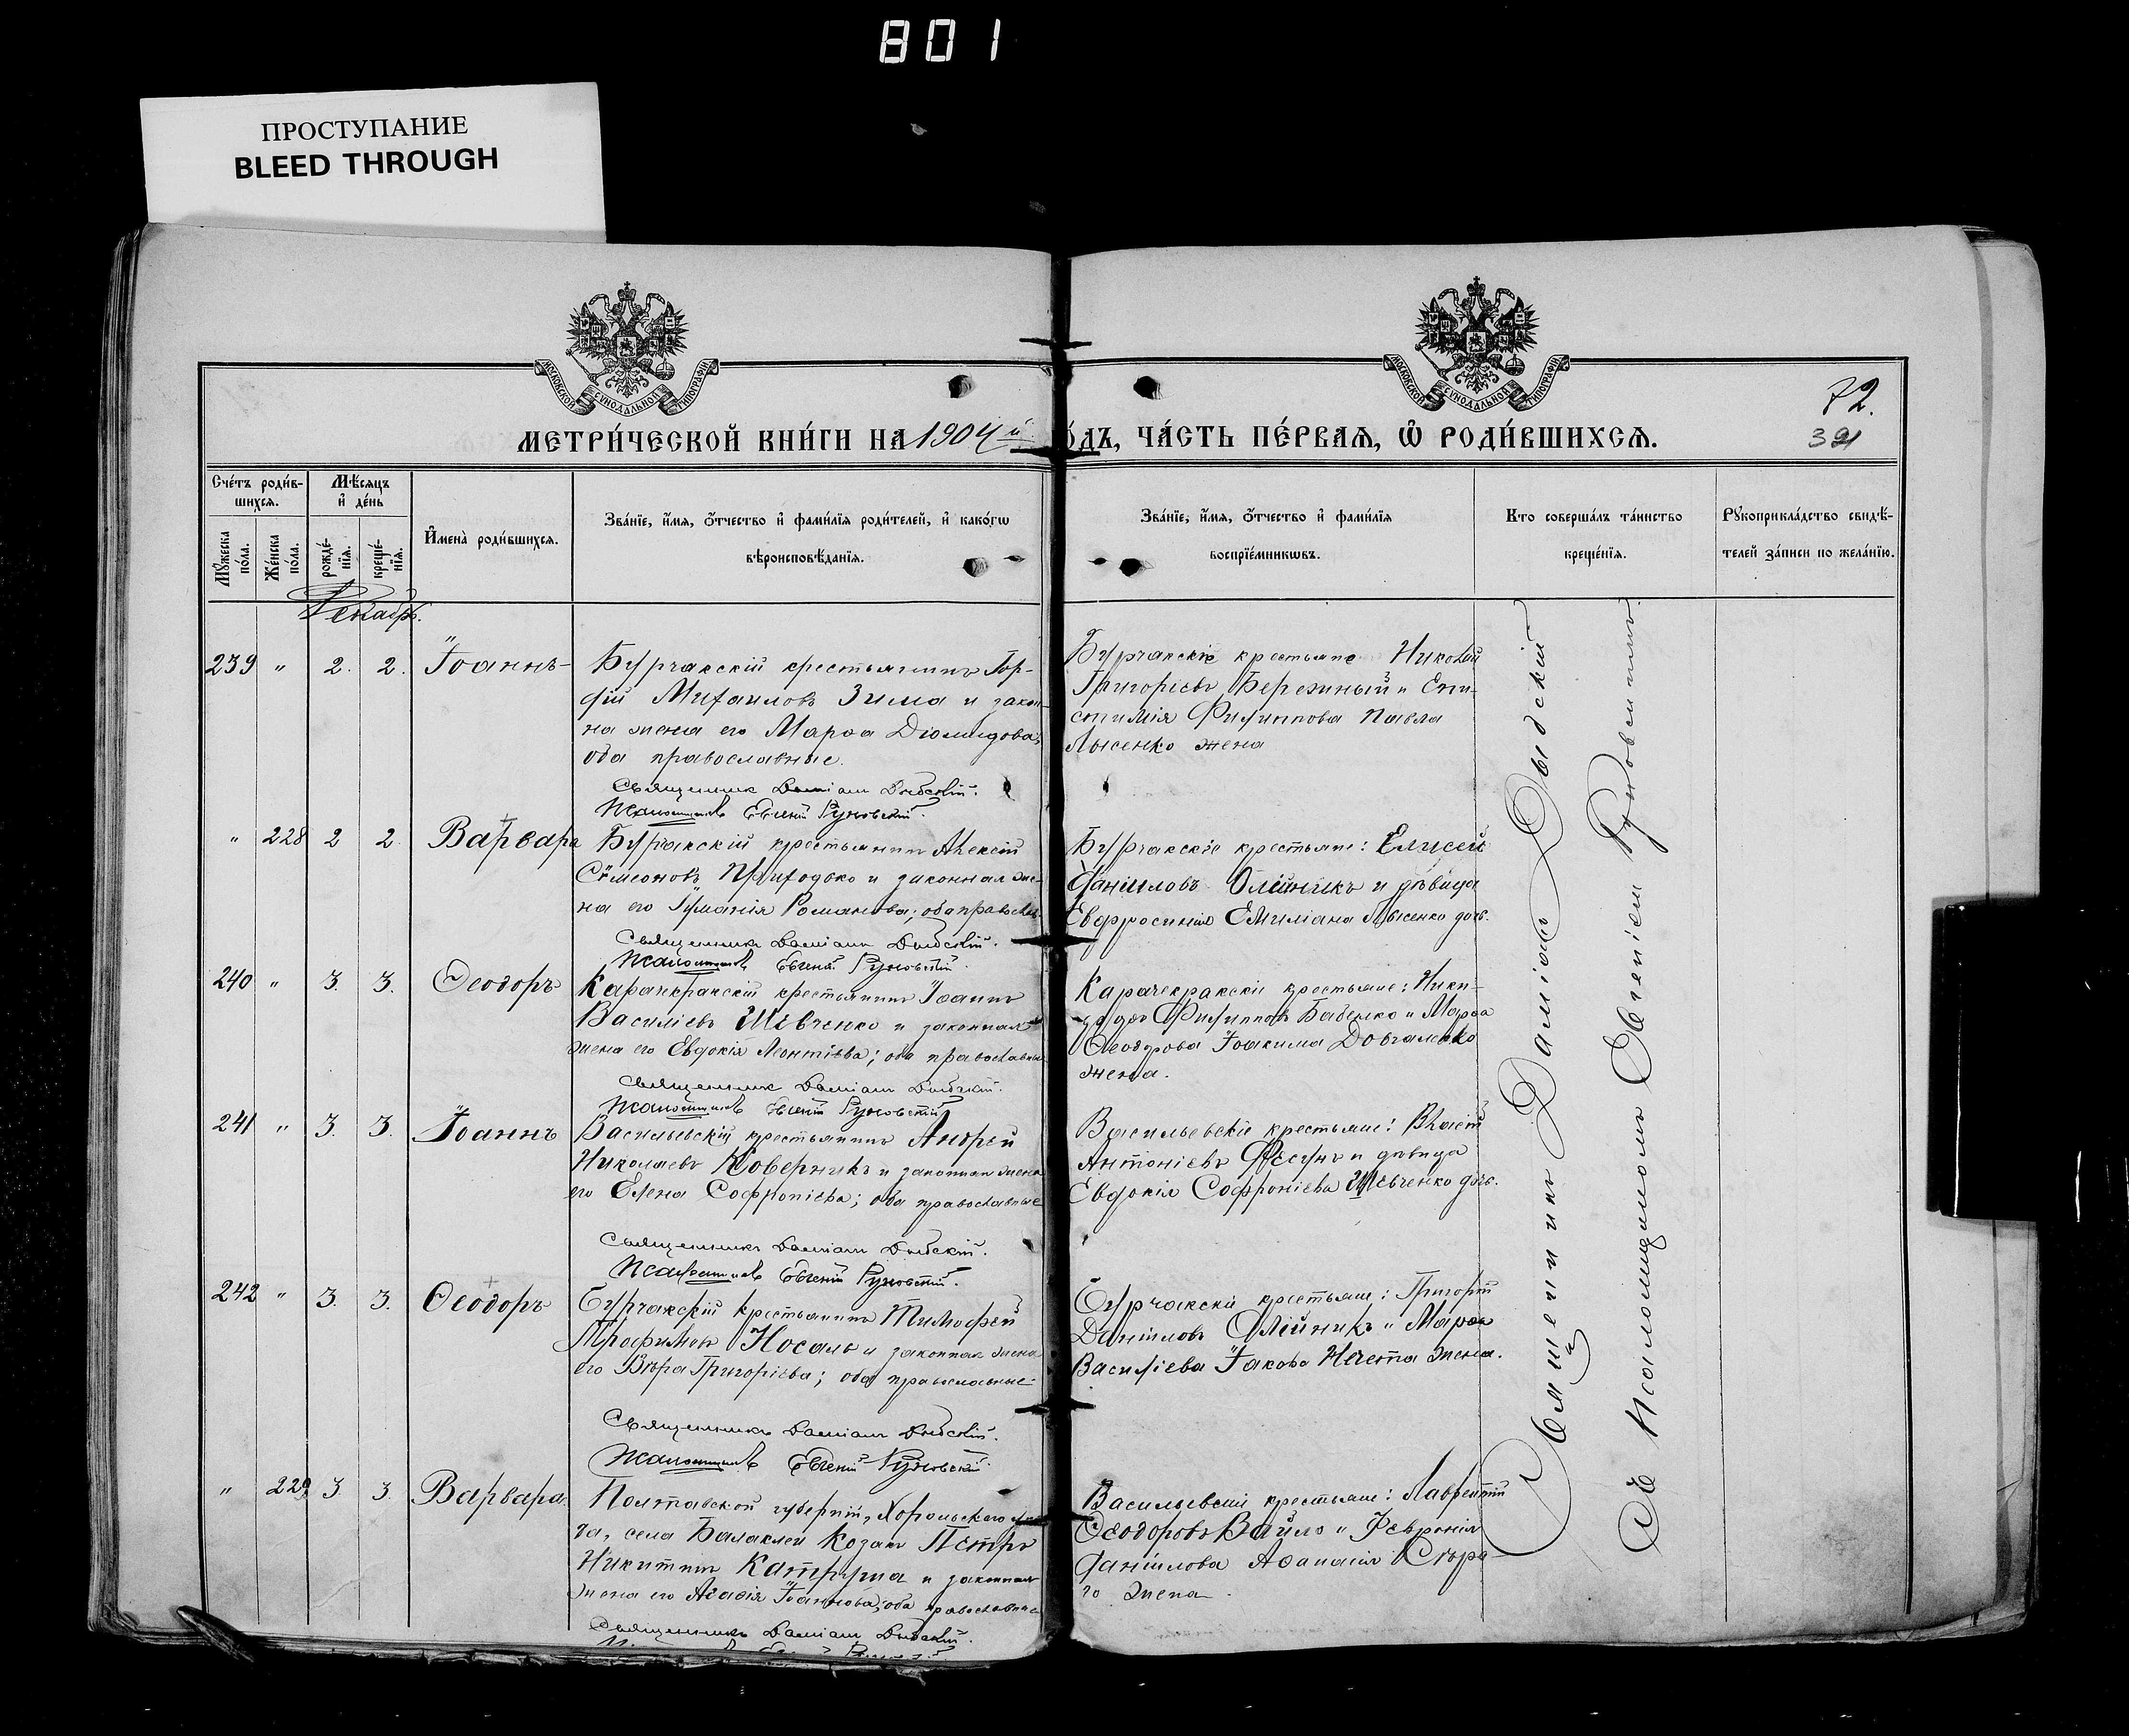 801
ПРОСТУПАНИЕ
BLEED THROUGH
МОСКОВСКОЙ СѴНОДАЛЬНОЙ ТИПОГРАФІИ
МОСКОВСКОЙ СѴНОДАЛЬНОЙ ТИПОГРАФІИ
72.
МЕТРИ́ЧЕСКОЙ КНИ́ГИ НА 1904 й
О́ДЪ, ЧА́СТЬ ПЕ́РВАѦ, Ѡ РОДИ́ВШИХСѦ.
391
Сче́тъ роди́в-
шихсѧ.
Мꙋ́жеска по́ла.
Же́нска по́ла.
Мѣ́сѧцъ
и҆ де́нь
рожде́-
нїѧ.
креще́-
нїѧ.
И҆мена̀ роди́вшихсѧ.
Зва́нїе, и҆́мѧ, ѻ҆́тчество и҆ фами́лїѧ роди́телей, и҆ како́гѡ
вѣроисповѣ́данїѧ.
Зва́нїе, и҆́мѧ, ѻ҆́тчество и҆ фами́лїѧ
воспрїе́мникѡвъ.
Кто соверша́лъ та́инство
креще́нїѧ.
Рꙋкоприкла́дство свидѣ́-
телей за́писи по жела́нїю.
Декабрь.
239 " 2. 2. Іоаннъ
Бурчакскій крестьянинъ Пор-
фій Михаиловъ Зима и закон-
на жена его Марѳа Діомидова,
оба православные.
Священникъ Даміанъ Дыбскій.
Псаломщикъ Евгеній Руновскій.
Бурчакскіе крестьяне Николай
Григоріевъ Березный и Епи-
стимія Филиппова Павла
Лысенко жена
" 228 2 2. Варвара
Бурчакскій крестьянинъ Алексій
Сѵмеоновъ Приходько и законная же-
на его Іуліанія Романова; оба правосл.
Священникъ Даміанъ Дыбскій.
Псаломщикъ Евгеній Руновскій.
Бурчакскіе крестьяне: Елисей
Даніиловъ Олійникъ и дѣвица
Евфросинія Емиліана Лысенко дочь.
240 " 3. 3. Ѳеодоръ
Карачекракскій крестьянинъ Іоаннъ
Василіевъ Шевченко и законная
жена его Евдокія Леонтіева; оба православные
Священникъ Даміанъ Дыбскій.
Псаломщикъ Евгеній Руновскій
Карачекракскіе крестьяне: Ники-
форъ Филипповъ Бабенко и Марѳа
Ѳеодорова Іоакима Довгаленко
жена.
241 " 3. 3. Іоаннъ
Васильевскій крестьянинъ Андрей
Николаевъ Коверникъ и законная жена
его Елена Софроніева; оба православные
Священникъ Даміанъ Дыбскій.
Псаломщикъ Евгеній Руновскій.
Васильевскіе крестьяне: Власій
Антоніевъ Фесунъ и дѣвица
Евдокія Софроніева Шевченко дочь.
242 " 3. 3. Ѳеодоръ
Бурчакскій крестьянинъ Тимофей
Трофимовъ Носаль и законная жена
его Вѣра Григоріева; оба православные
Священникъ Даміанъ Дыбскій.
Псаломщикъ Евгеній Руновскій.
Бурчакскіе крестьяне: Григорій
Даніиловъ Олійникъ и Марѳа
Василіева Іакова Нечета жена.
" 229 3. 3. Варвара.
Полтавской губерніи, Хорольскаго уѣз-
да, села Балаклеи козакъ Петръ
Никитинъ и законная
жена его Агаѳія Іоаннова; оба православные
Священникъ Даміанъ Дыбскій.
Васильевскіе крестьяне: Лаврентій
Ѳеодоровъ Вайло и Февронія
Даніилова Аѳанасія Стѣра-
го жена.
Священникъ Даміанъ Дыбскій
Съ псаломщикомъ Евгеніемъ Руновскимъ.